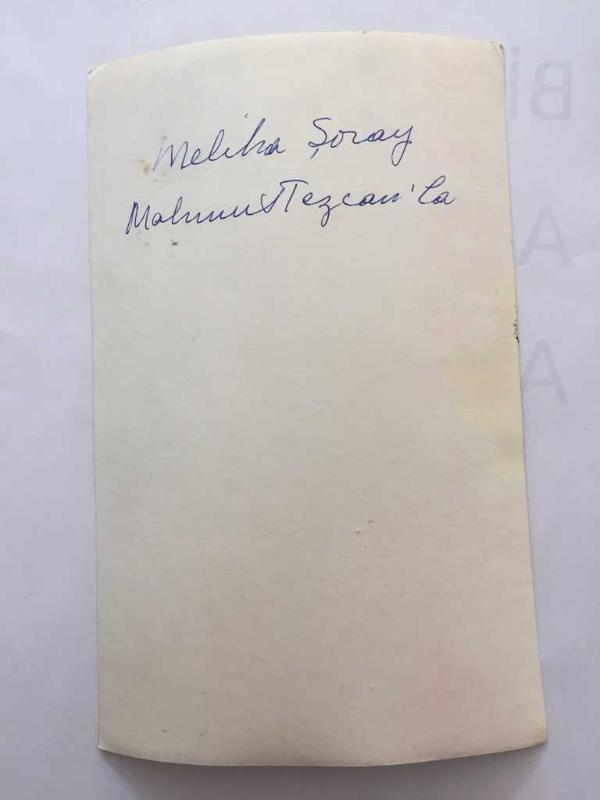 Meliha Şoray
Mahmut Tezcan'la
Bi
A
A